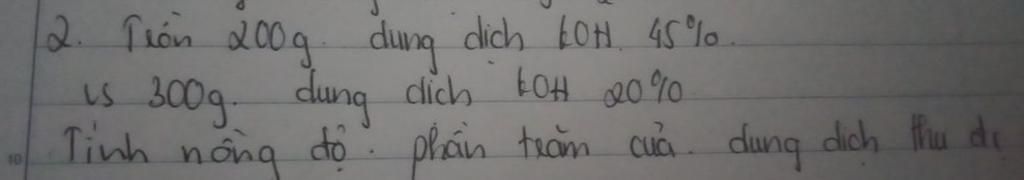 2. Trộn 200g dung dịch KOH 45%.
vs 300g. dung dịch KOH 20%
Tính nồng độ. phần trăm của. dung dịch thu